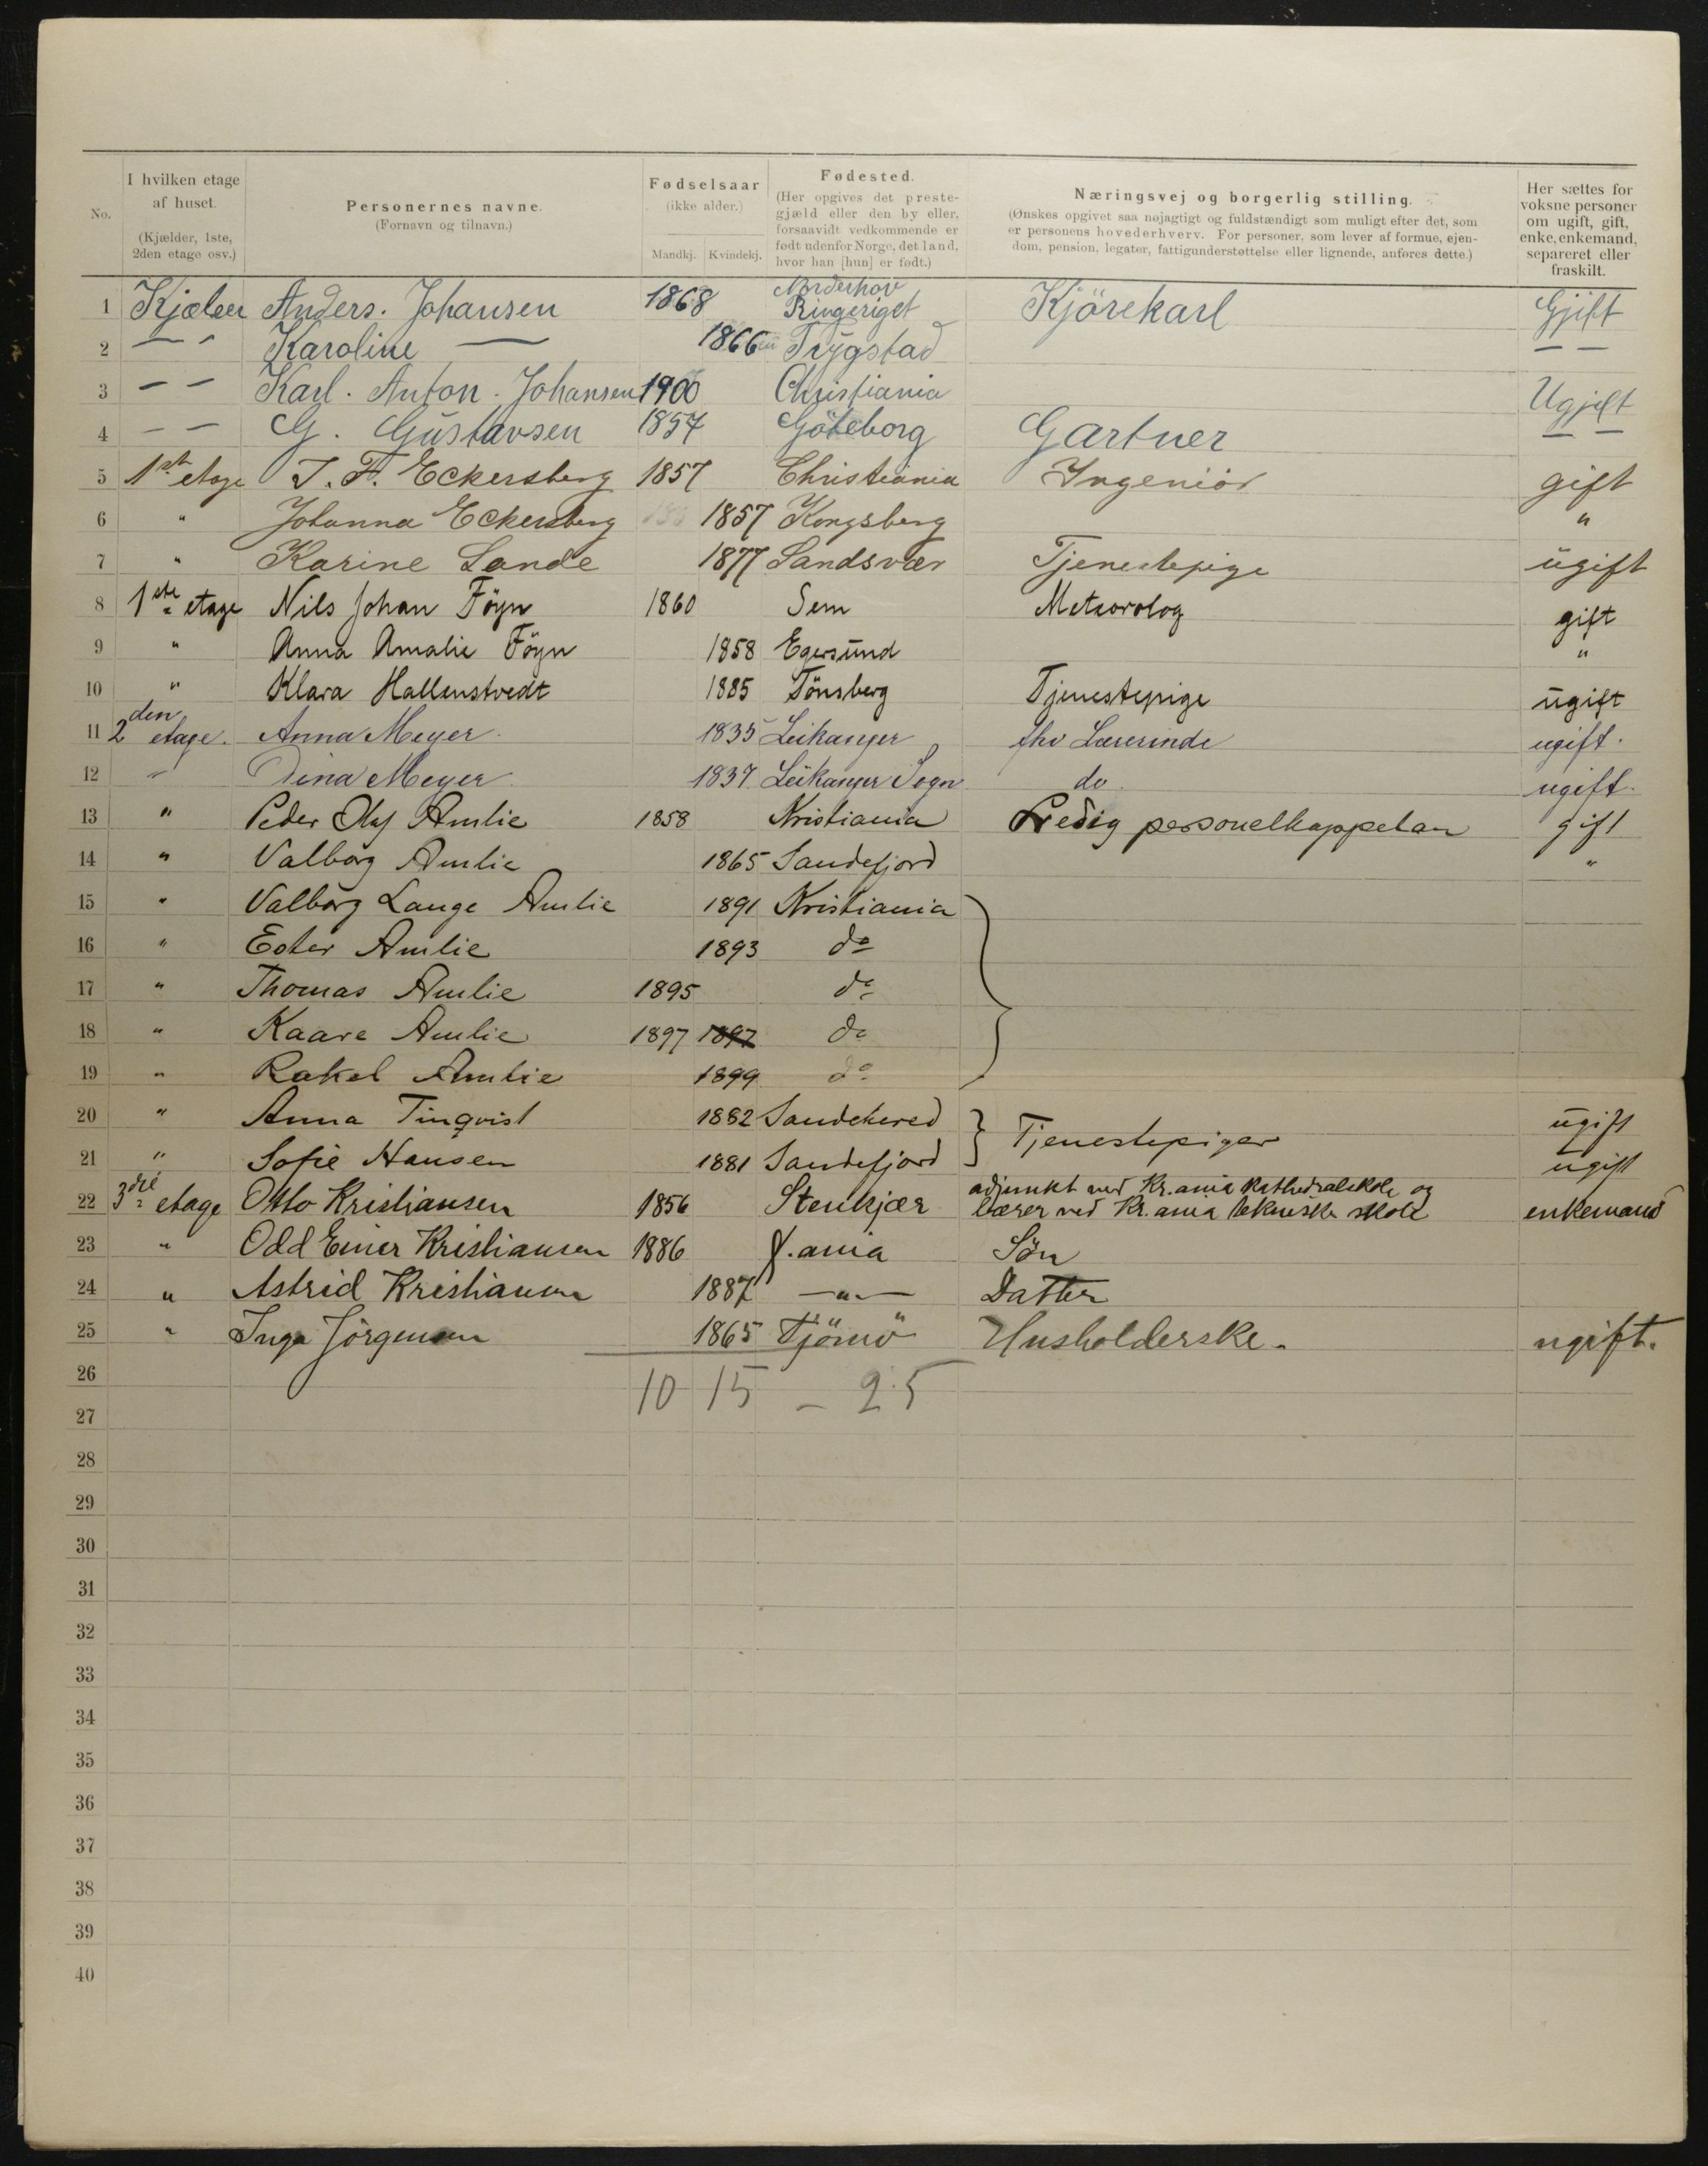 No.
I hvilken etage af huset. (Kjælder, 1ste, 2den etage osv.)
Personernes navne. (Fornavn og tilnavn.)
Fødselsaar (ikke alder.) Mandkj. Kvindekj.
Fødested. (Her opgives det prestegjæld eller den by eller, forsaavidt vedkommende er født udenfor Norge, det land, hvor han [hun] er født.)
Næringsvej og borgerlig stilling. (Ønskes opgivet saa nøjagtigt og fuldstændigt som muligt efter det, som er personens hovederhverv. For personer, som lever af formue, ejendom, pension, legater, fattigunderstøttelse eller lignende, anføres dette.)
Her sættes for voksne personer om ugift, gift, enke, enkemand, separeret eller fraskilt.
1 Kjæleer Anders. Johansen 1868 Norderhov Ringeriget Kjörekarl Gjift
2 — " Karoline — 1866 Trygstad — —
3 — — Karl. Anton. Johansen 1900 Christiania Ugjift
4 — — G. Gustavsen 1857 Göteborg Gartner — —
5 1ste etage J. F. Eckersberg 1857 Christiania Ingeniör gift
6 " Johanna Eckersberg 1857 Kongsberg "
7 " Karine Lande 1877 Sandsvær Tjenestepige ugift
8 1ste etage Nils Johan Föyn 1860 Sem Meteorolog gift
9 " Anna Amalie Föyn 1858 Egersund "
10 " Klara Hallenstvedt 1885 Tönsberg Tjenestepige ugift
11 2den etage. Anna Meyer. 1835 Leikanger fhv Lærerinde ugift.
12 " Dina Meyer 1837 Leikanger Sogn do. ugift.
13 " Peder Olaf Amlie 1858 Kristiania Predig personelkappelan gift
14 " Valborg Amlie 1865 Sandefjord "
15 " Valborg Lange Amlie 1891 Kristiania
16 " Ester Amlie 1893 do
17 " Thomas Amlie 1895 do
18 " Kaare Amlie 1897 1897 do
19 " Rakel Amlie 1899 do
20 " Anna Tinqvist 1882 Sandehered } Tjenestepiger ugift
21 " Sofie Hansen 1881 Sandefjord ugift
22 3die etage Otto Kristiansen 1856 Stenkjær adjunkt ved Kr.ania kathedralskole og lærer ved Kr.ania tekniske skole enkemand
23 " Odd Einer Kristiansen 1886 K.ania Sön
24 " Astrid Kristiansen 1887 —"— Datter
25 " Inga Jörgensen 1865 Tjömö Husholderske. ugift.
26
10 15 — 25
27
28
29
30
31
32
33
34
35
36
37
38
39
40